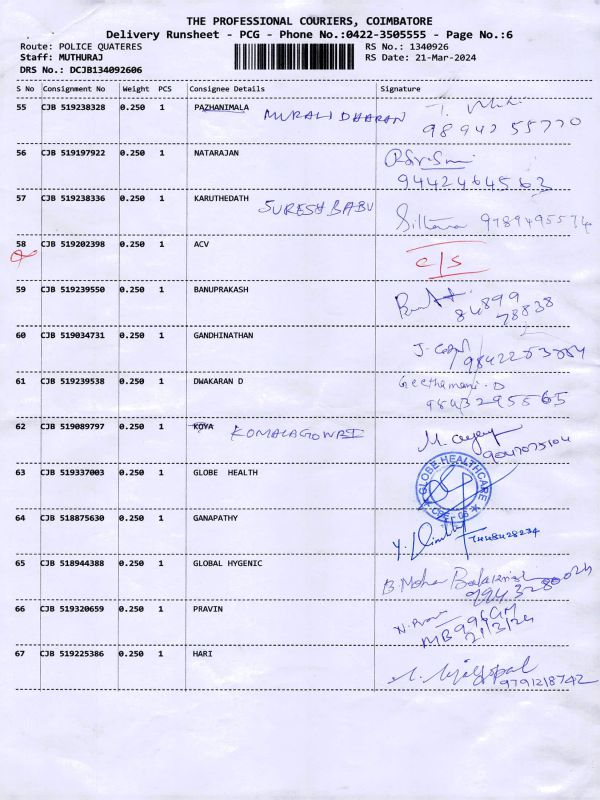 THE PROFESSIONAL COURIERS, COIMBATORE
Delivery Runsheet - PCG - Phone No.:0422-3505555 - Page No.:6
Route: POLICE QUATERES RS No.: 1340926
Staff: MUTHURAJ RS Date: 21-Mar-2024
DRS No.: DCJB134092606
S No Consignment No Weight PCS Consignee Details Signature
55 CJB 519238328 0.250 1 PAZHANIMALA MURALI DHARAN
98942 55770
56 CJB 519197922 0.250 1 NATARAJAN
9442464563
57 CJB 519238336 0.250 1 KARUTHEDATH SURESH BABU
9789495574
58 CJB 519202398 0.250 1 ACV C/S
59 CJB 519239550 0.250 1 BANUPRAKASH
84899
78838
60 CJB 519034731 0.250 1 GANDHINATHAN
61 CJB 519239538 0.250 1 DWAKARAN D Geethamani. D
9843295565
62 CJB 519089797 0.250 1 KOYA KOMALAGOWRI
63 CJB 519337003 0.250 1 GLOBE HEALTH GLOBE HEALTHCARE
64 CJB 518875630 0.250 1 GANAPATHY
7448428234
65 CJB 518944388 0.250 1 GLOBAL HYGENIC
66 CJB 519320659 0.250 1 PRAVIN
21/3/24
67 CJB 519225386 0.250 1 HARI
9791218742